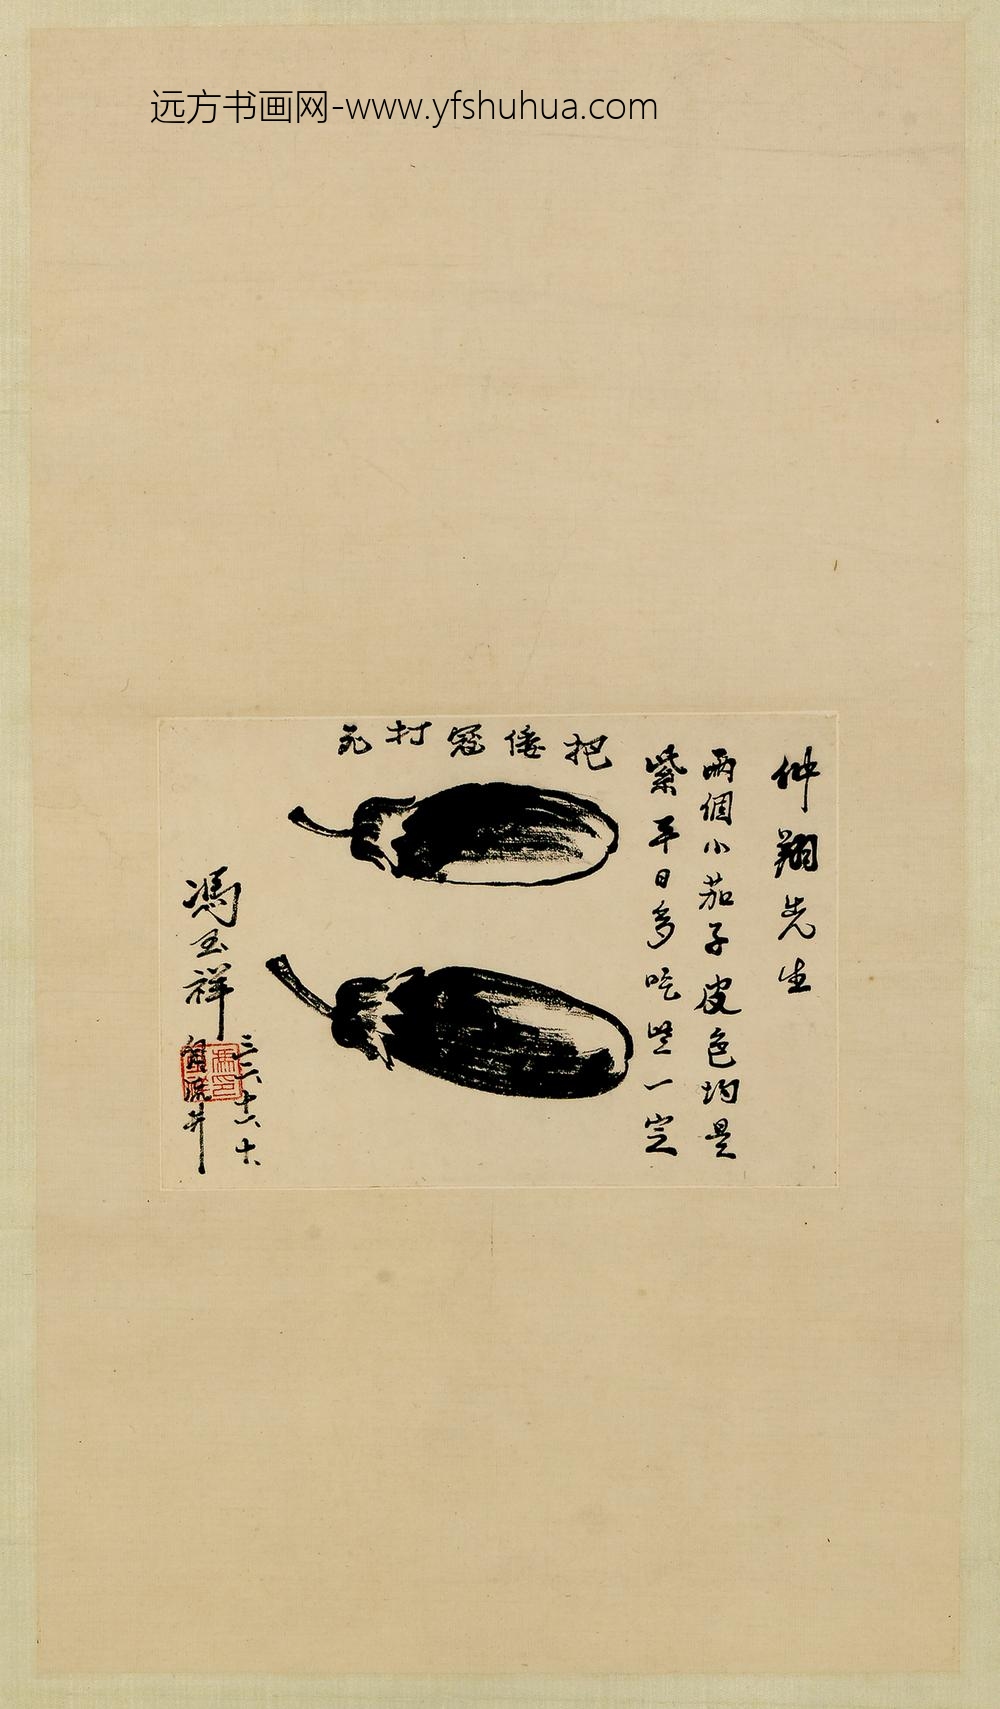 远方书画网-www.yfshuhua.com
仲翔先生
兩個小茄子皮色均是
紫平日多吃些一定
把倭寇打死
馮玉祥